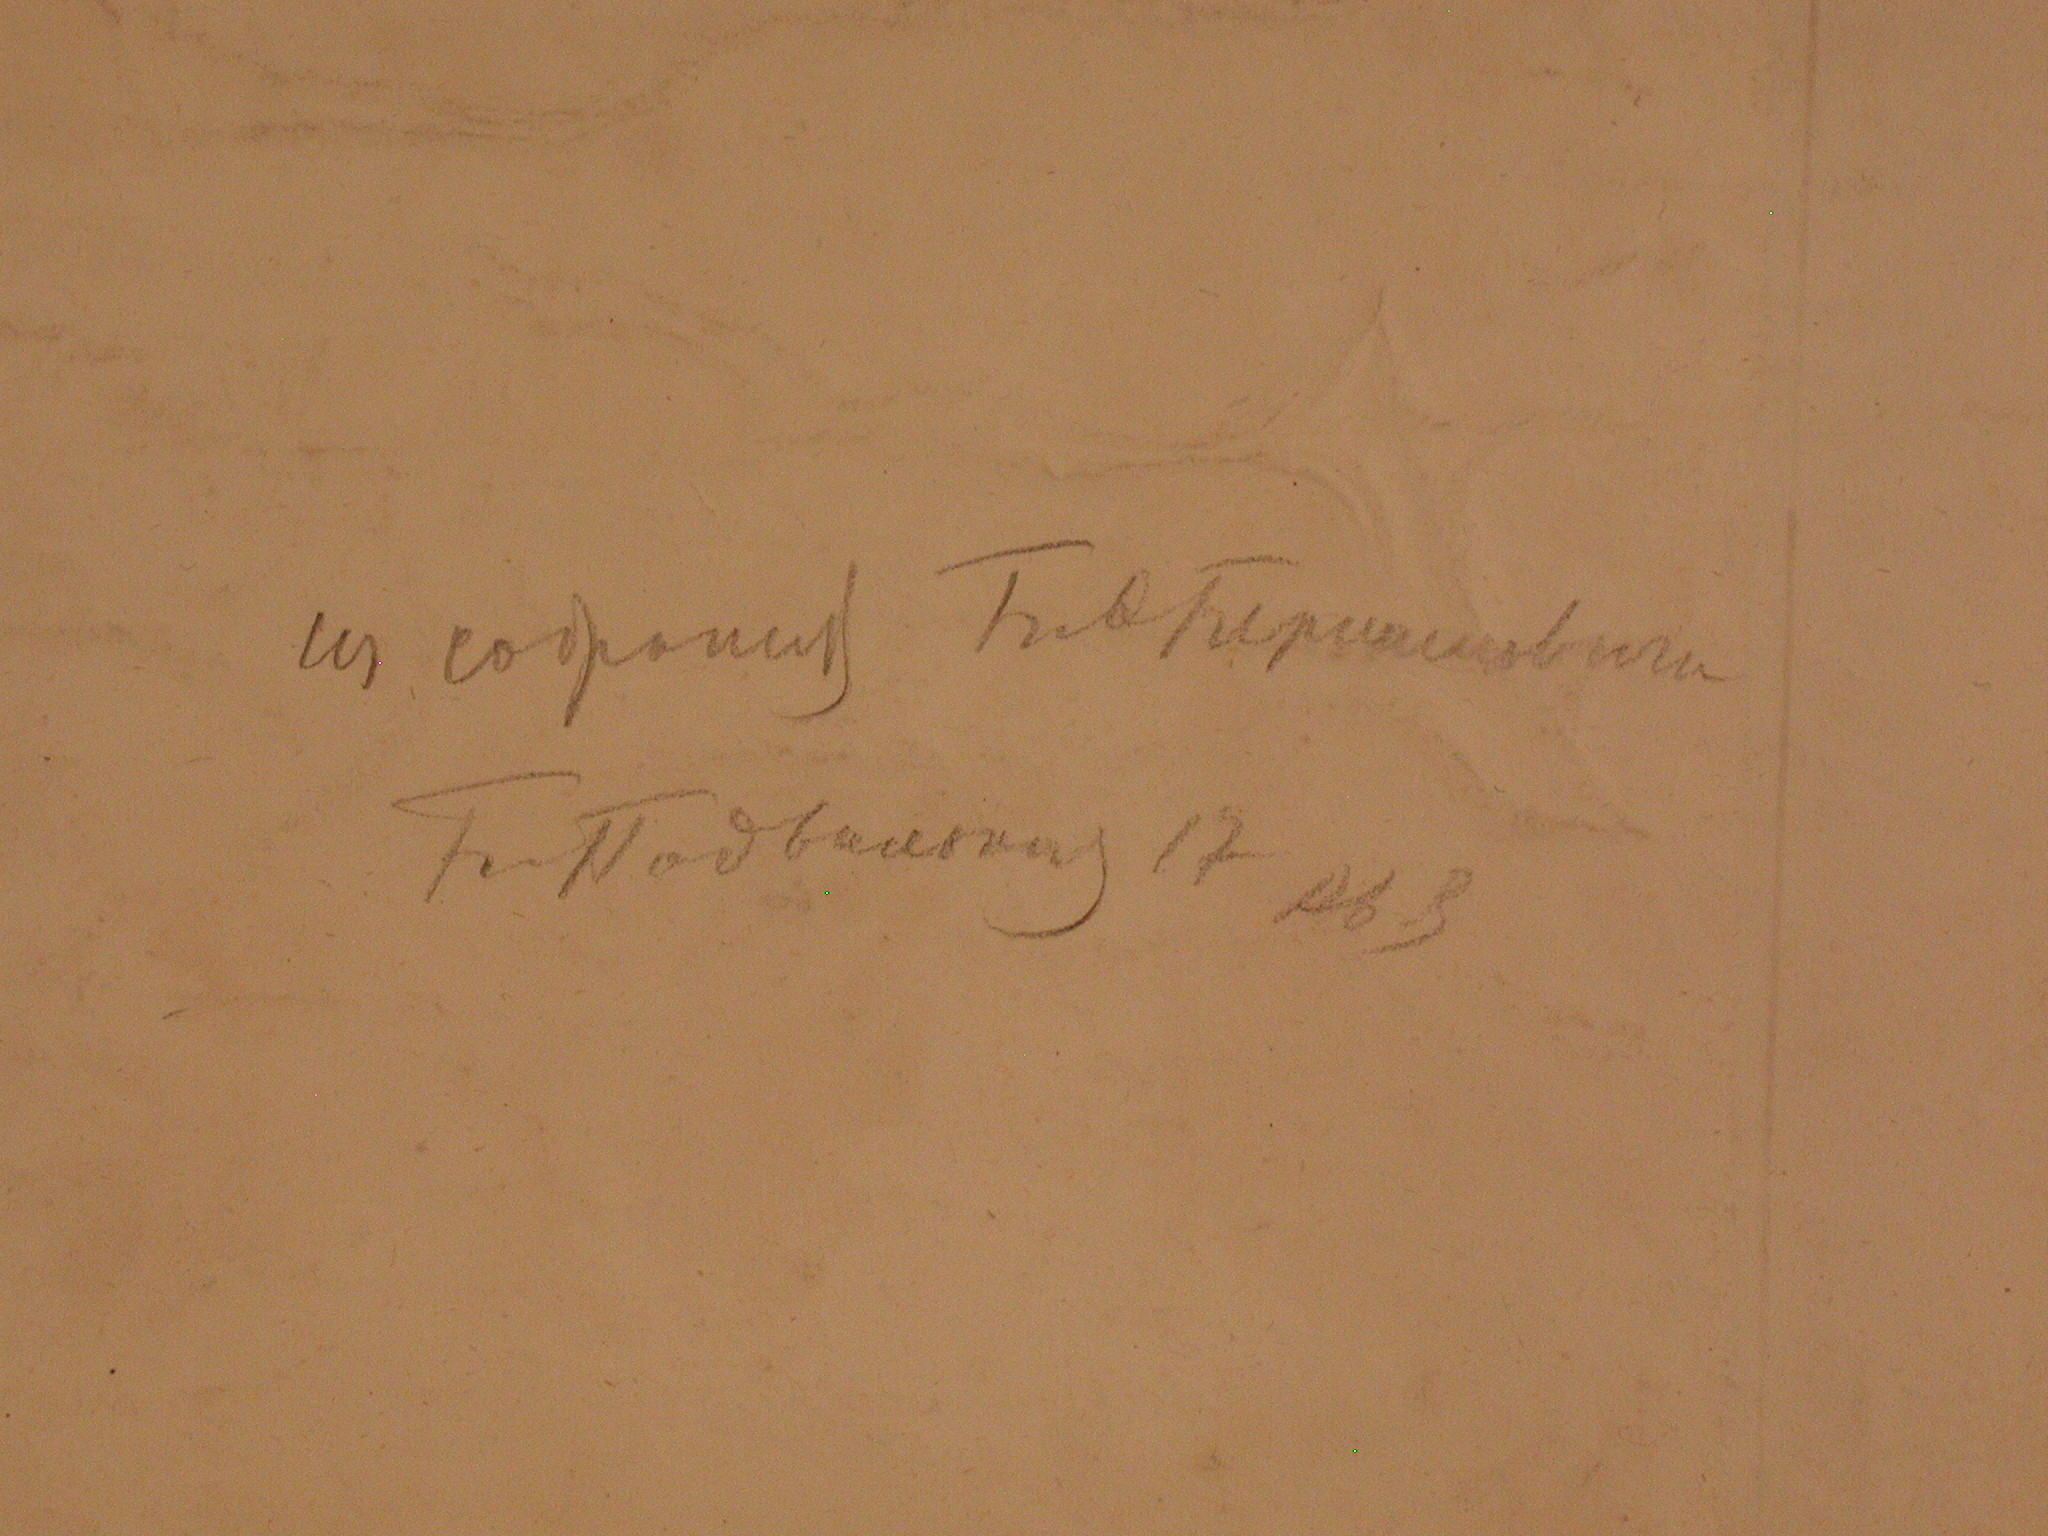 из собрания Б.Ф Бернашевича
Б. Подвальная 17
кв 3